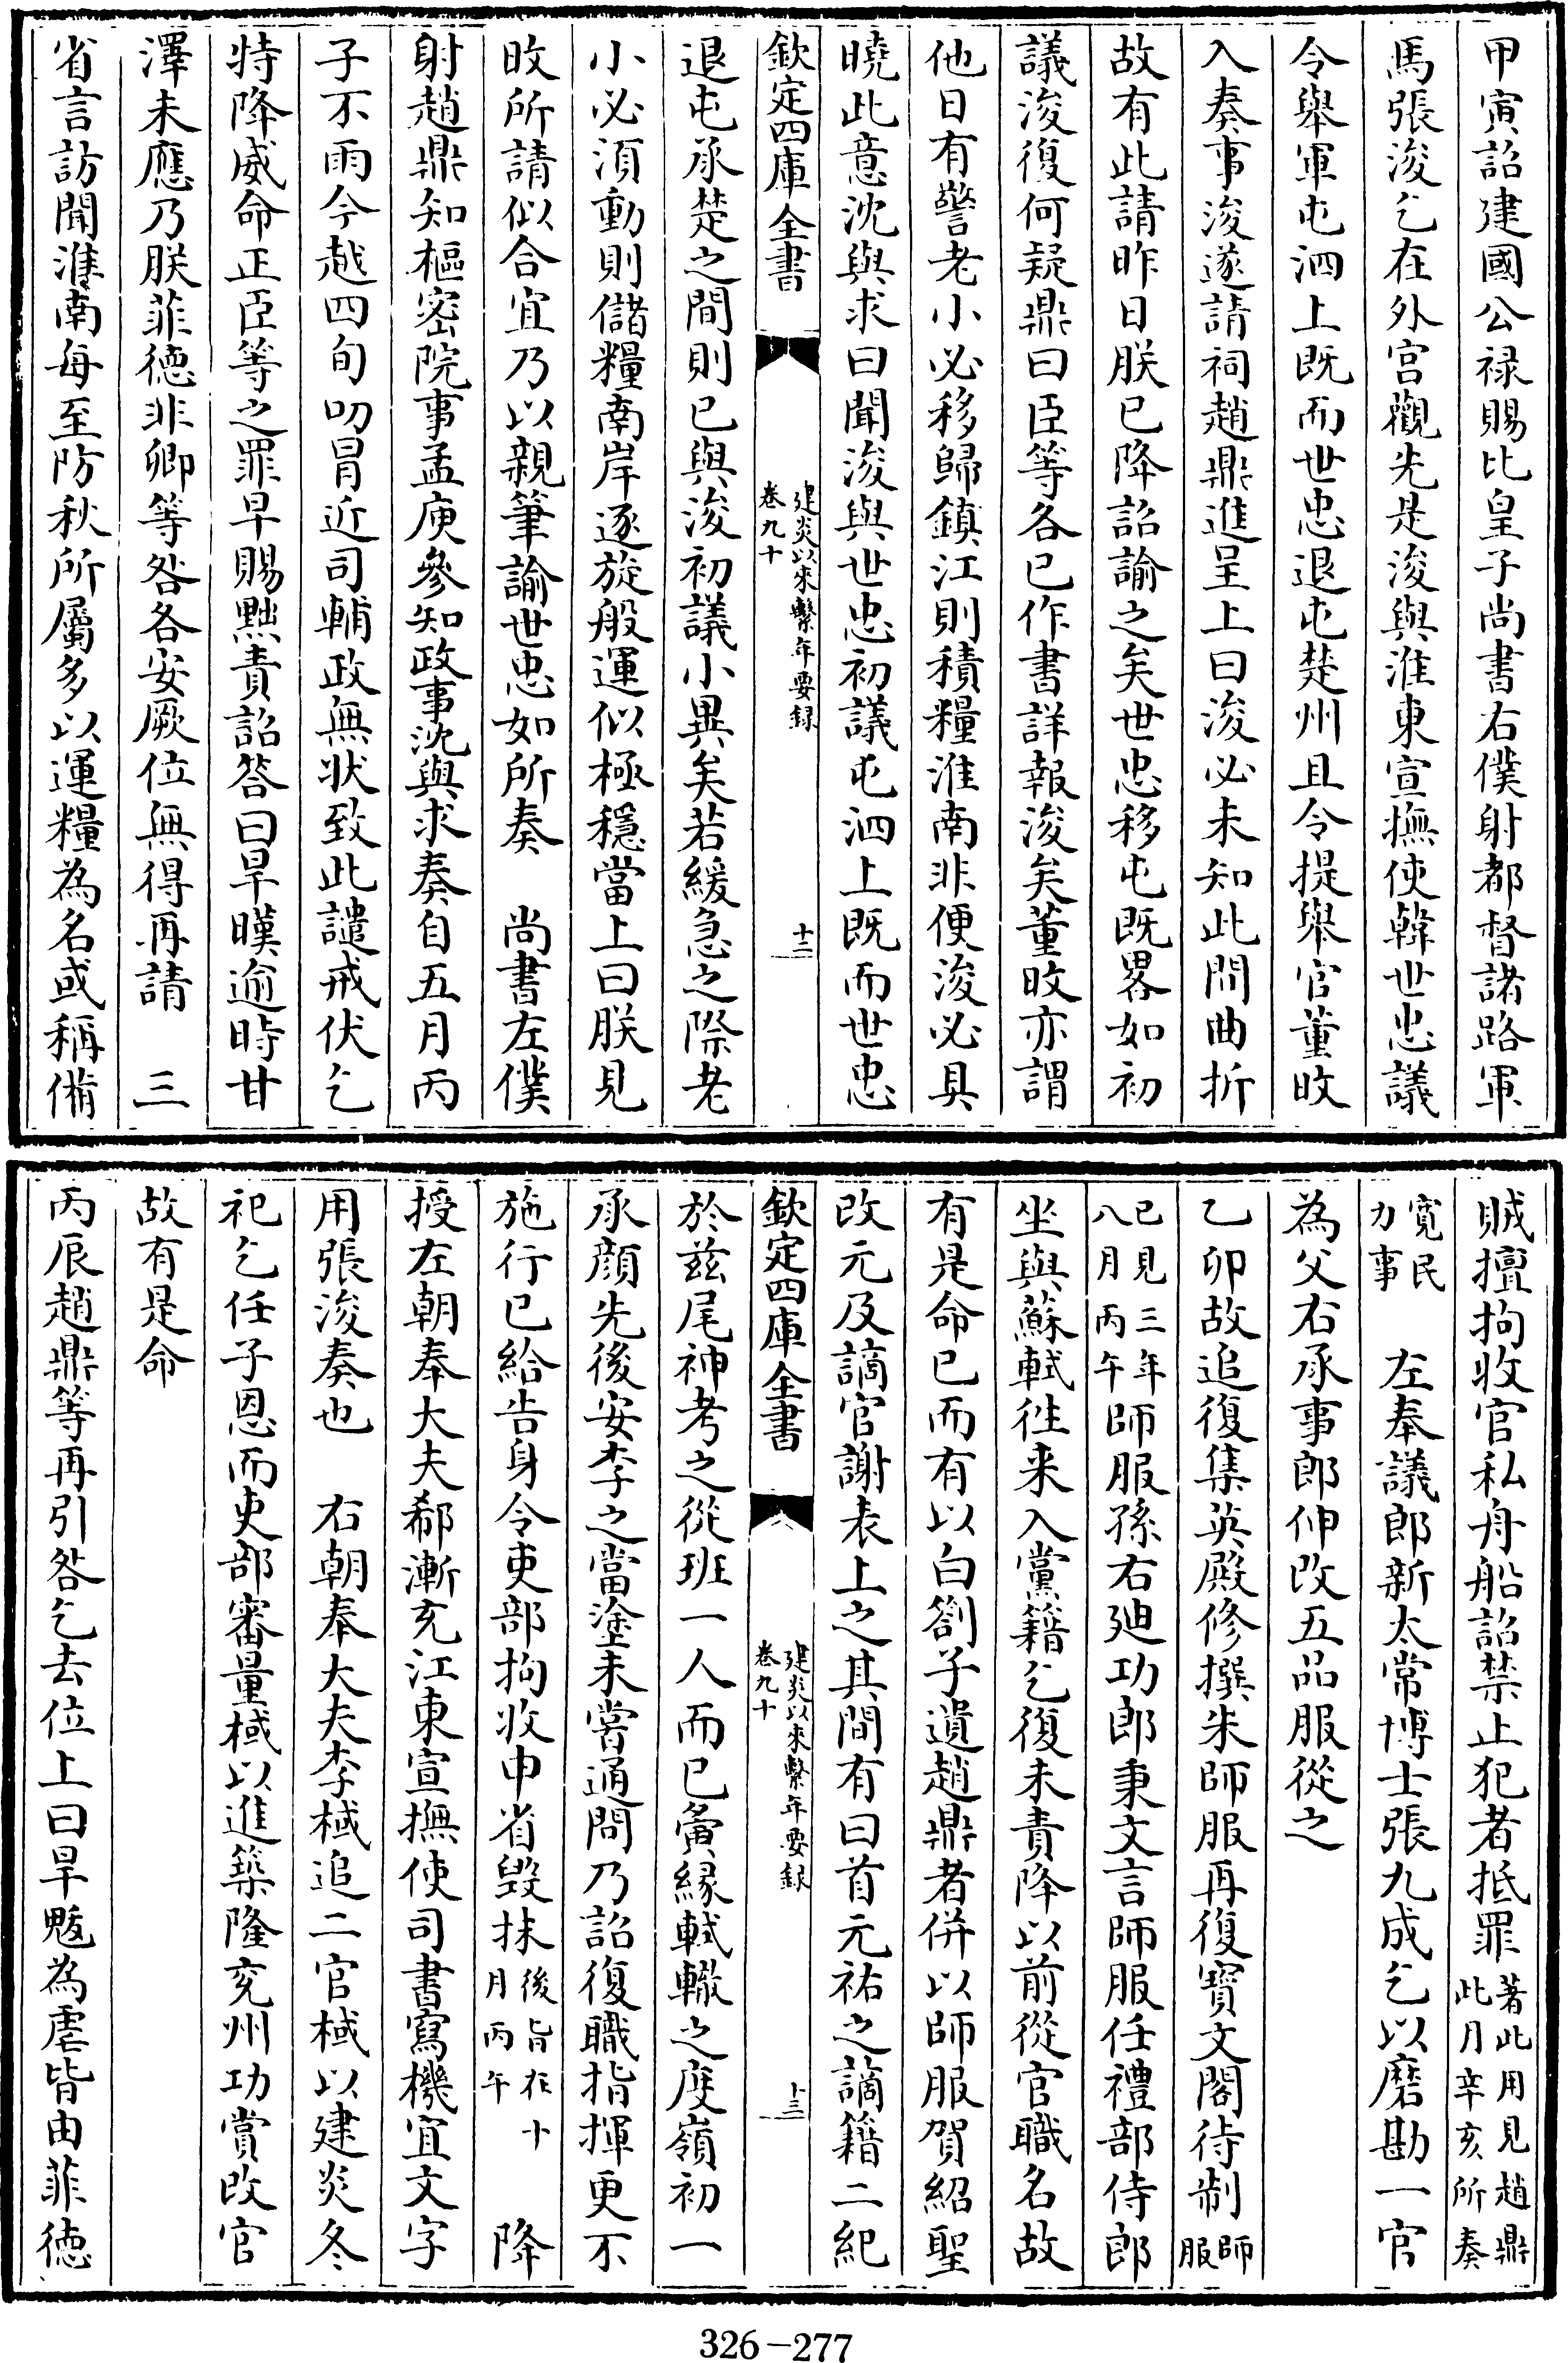 甲寅詔建國公祿賜比皇子尚書右僕射都督諸路軍
馬張浚乞在外宮觀先是浚與淮東宣撫使韓世忠議
令舉軍屯泗上既而世忠退屯楚州且令提舉官董旼
入奏事浚遂請祠趙鼎進呈上曰浚必未知此間曲折
故有此請昨日朕已降詔諭之矣世忠移屯既畧如初
議浚復何疑鼎曰臣等各已作書詳報浚矣董旼亦謂
他日有警老小必移歸鎮江則積糧淮南非便浚必具
曉此意沈與求曰聞浚與世忠初議屯泗上既而世忠
欽定四庫全書
建炎以來繫年要録
卷九十
十二
退屯承楚之間則已與浚初議小異矣若緩急之際老
小必須動則儲糧南岸逐旋般運似極穩當上曰朕見
旼所請似合宜乃以親筆諭世忠如所奏　尚書左僕
射趙鼎知樞密院事孟庾參知政事沈與求奏自五月丙
子不雨今越四旬叨冒近司輔政無狀致此譴戒伏乞
特降威命正臣等之罪早賜黜責詔答曰旱暵逾時甘
澤未應乃朕菲德非卿等咎各安厥位無得再請　三
省言訪聞淮南每至防秋所屬多以運糧為名或稱備
賊擅拘收官私舟船詔禁止犯者抵罪著此用見趙鼎
此月辛亥所奏
寬民
力事　左奉議郎新太常博士張九成乞以磨勘一官
為父右承事郎伸改五品服從之
乙卯故追復集英殿修撰朱師服再復寶文閣待制師
服
已見三年
八月丙午師服孫右廸功郎秉文言師服任禮部侍郎
坐與蘇軾徃来入黨籍乞復未責降以前從官職名故
有是命已而有以白劄子遺趙鼎者併以師服賀紹聖
改元及謫官謝表上之其間有曰首元祐之謫籍二紀
欽定四庫全書
建炎以來繫年要録
卷九十
十三
於茲尾神考之從班一人而已夤緣軾轍之度嶺初一
承顔先後安李之當塗未嘗通問乃詔復職指揮更不
施行已給告身令吏部拘收申省毀抹後旨在十
月丙午　降
授左朝奉大夫郗漸充江東宣撫使司書寫機宜文字
用張浚奏也　右朝奉大夫李棫追二官棫以建炎冬
祀乞任子恩而吏部審量棫以進築隆兗州功賞改官
故有是命
丙辰趙鼎等再引咎乞去位上曰旱魃為虐皆由菲德
326-277